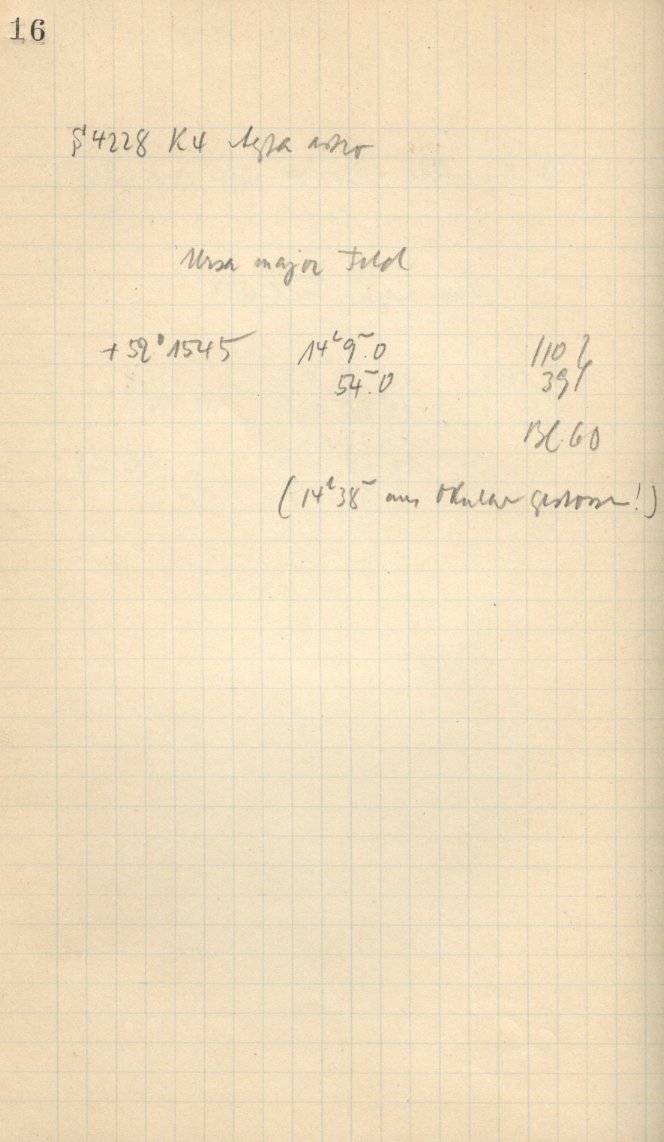 16
4228 K4 Agfa astro
Ursa major Feld
+52° 1545 14ʰ 9ᵐ.0 110
54ᵐ.0 39
Bl. 60
(14ʰ 38ᵐ aus Okular gestossen!)